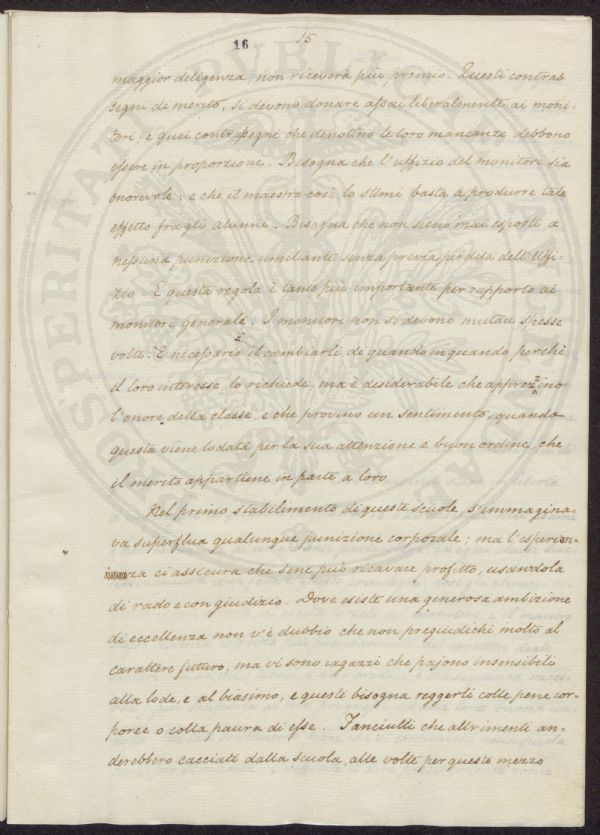 16
15
maggior deligenza, non riceverà più premio. Questi contras
segni di merito, si devono donare assai liberalmente ai moni-
tori, e quei contrassegni che denotino le loro mancanze debbono
essere in proporzione. Bisogna che l'uffizio del monitore sia
onorevole; e che il maestro così lo stimi basta a produrre tale
effetto fra gli alunni. Bisogna che non sieno mai esposti a
nessuna punizione umiliante senza previa perdita dell'Uffi-
zio. E questa regola è tanto più importante per rapporto ai
monitori generali. I monitori non si devono mutare spesse
volte. È necessario il cambiarli di quando in quando perchè
il loro interesse lo richiede, ma è desiderabile che apprezzino
l'onore della classe, e che provino un sentimento, quando
questa viene lodata per la sua attenzione e buon ordine, che
il merito appartiene in parte a loro
Nel primo stabilimento di queste scuole, s'immagina-
va superflua qualunque punizione corporale; ma l'esperien-
za ci assicura che sene può ricavare profitto, usandola
di rado e con giudizio. Dove esiste una generosa ambizione
di eccellenza non v'è dubbio che non pregiudichi molto al
carattere futuro, ma vi sono ragazzi che pajono insensibili
alla lode, e al biasimo, e questi bisogna reggerli colle pene cor-
poree o colla paura di esse. Fanciulli che altrimenti an-
derebbero cacciati dalla scuola, alle volte per questo mezzo
PROSPERITATI PVBLICAE